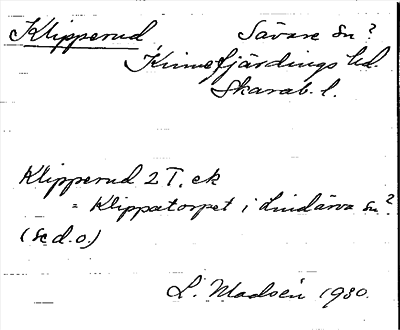 Klipperud, Sävare sn?
Kinnefjärdings hd.
Skarab. l.
Klipperud 2 T. ek
= Klippatorpet i Lindärva sn?
(se d.o.)
L. Madsén 1930.